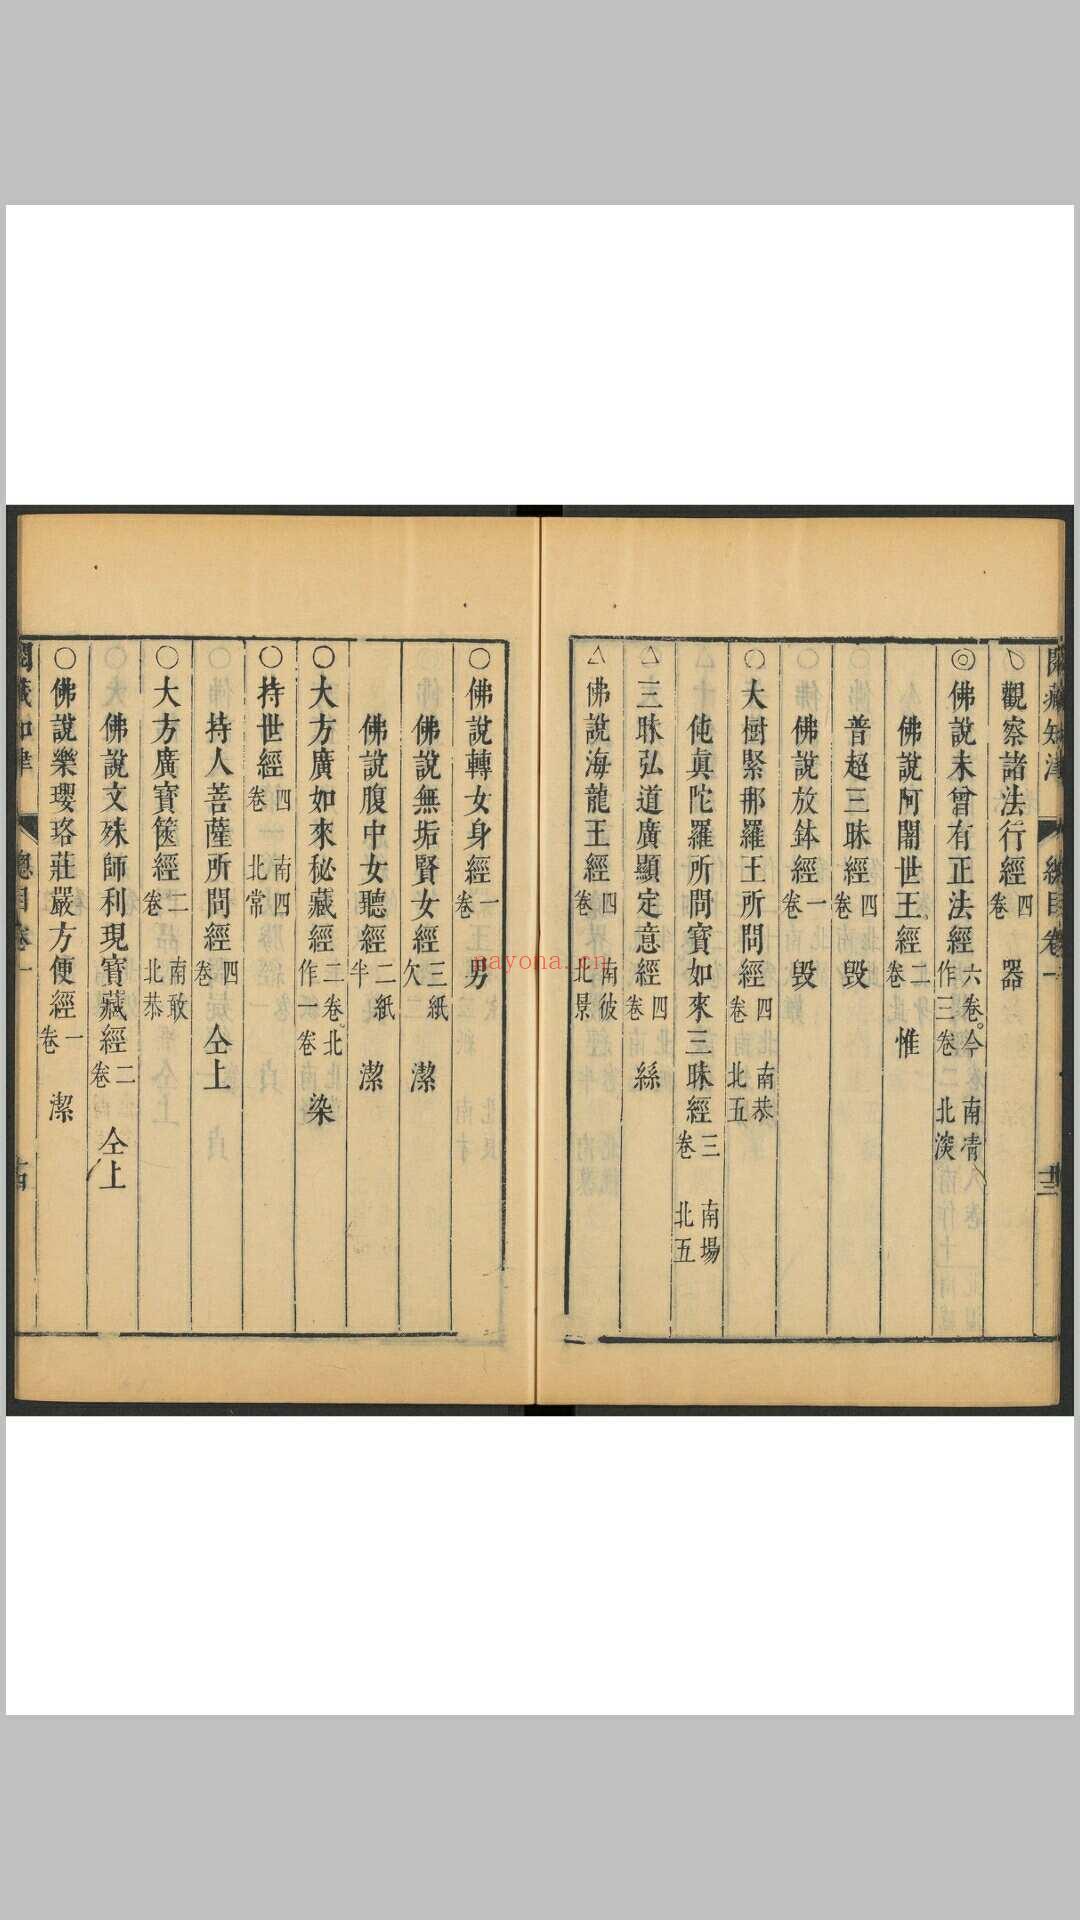 閱藏知津 總目卷一 十三
觀察諸法行經四卷 器
◎佛說未曾有正法經六卷。今作三卷 南清北深
佛說阿闍世王經二卷 惟
普超三昧經四卷 毀
佛說放鉢經一卷 毀
○大樹緊那羅王所問經四卷 南恭北五
伅真陀羅所問寶如來三昧經三卷 南場北五
△三昧弘道廣顯定意經四卷 絲
△佛說海龍王經四卷 南彼北景
○佛說轉女身經一卷 男
佛說無垢賢女經三紙欠 潔
佛說腹中女聽經二紙半 潔
○大方廣如來秘藏經二卷。北作一卷 染
○持世經四卷 南四北常
持人菩薩所問經四卷 仝上
○大方廣寶篋經二卷 南敢北恭
佛說文殊師利現寶藏經二卷 仝上
○佛說樂瓔珞莊嚴方便經一卷 潔
閱藏知津 總目卷一 十四
nayona.cn